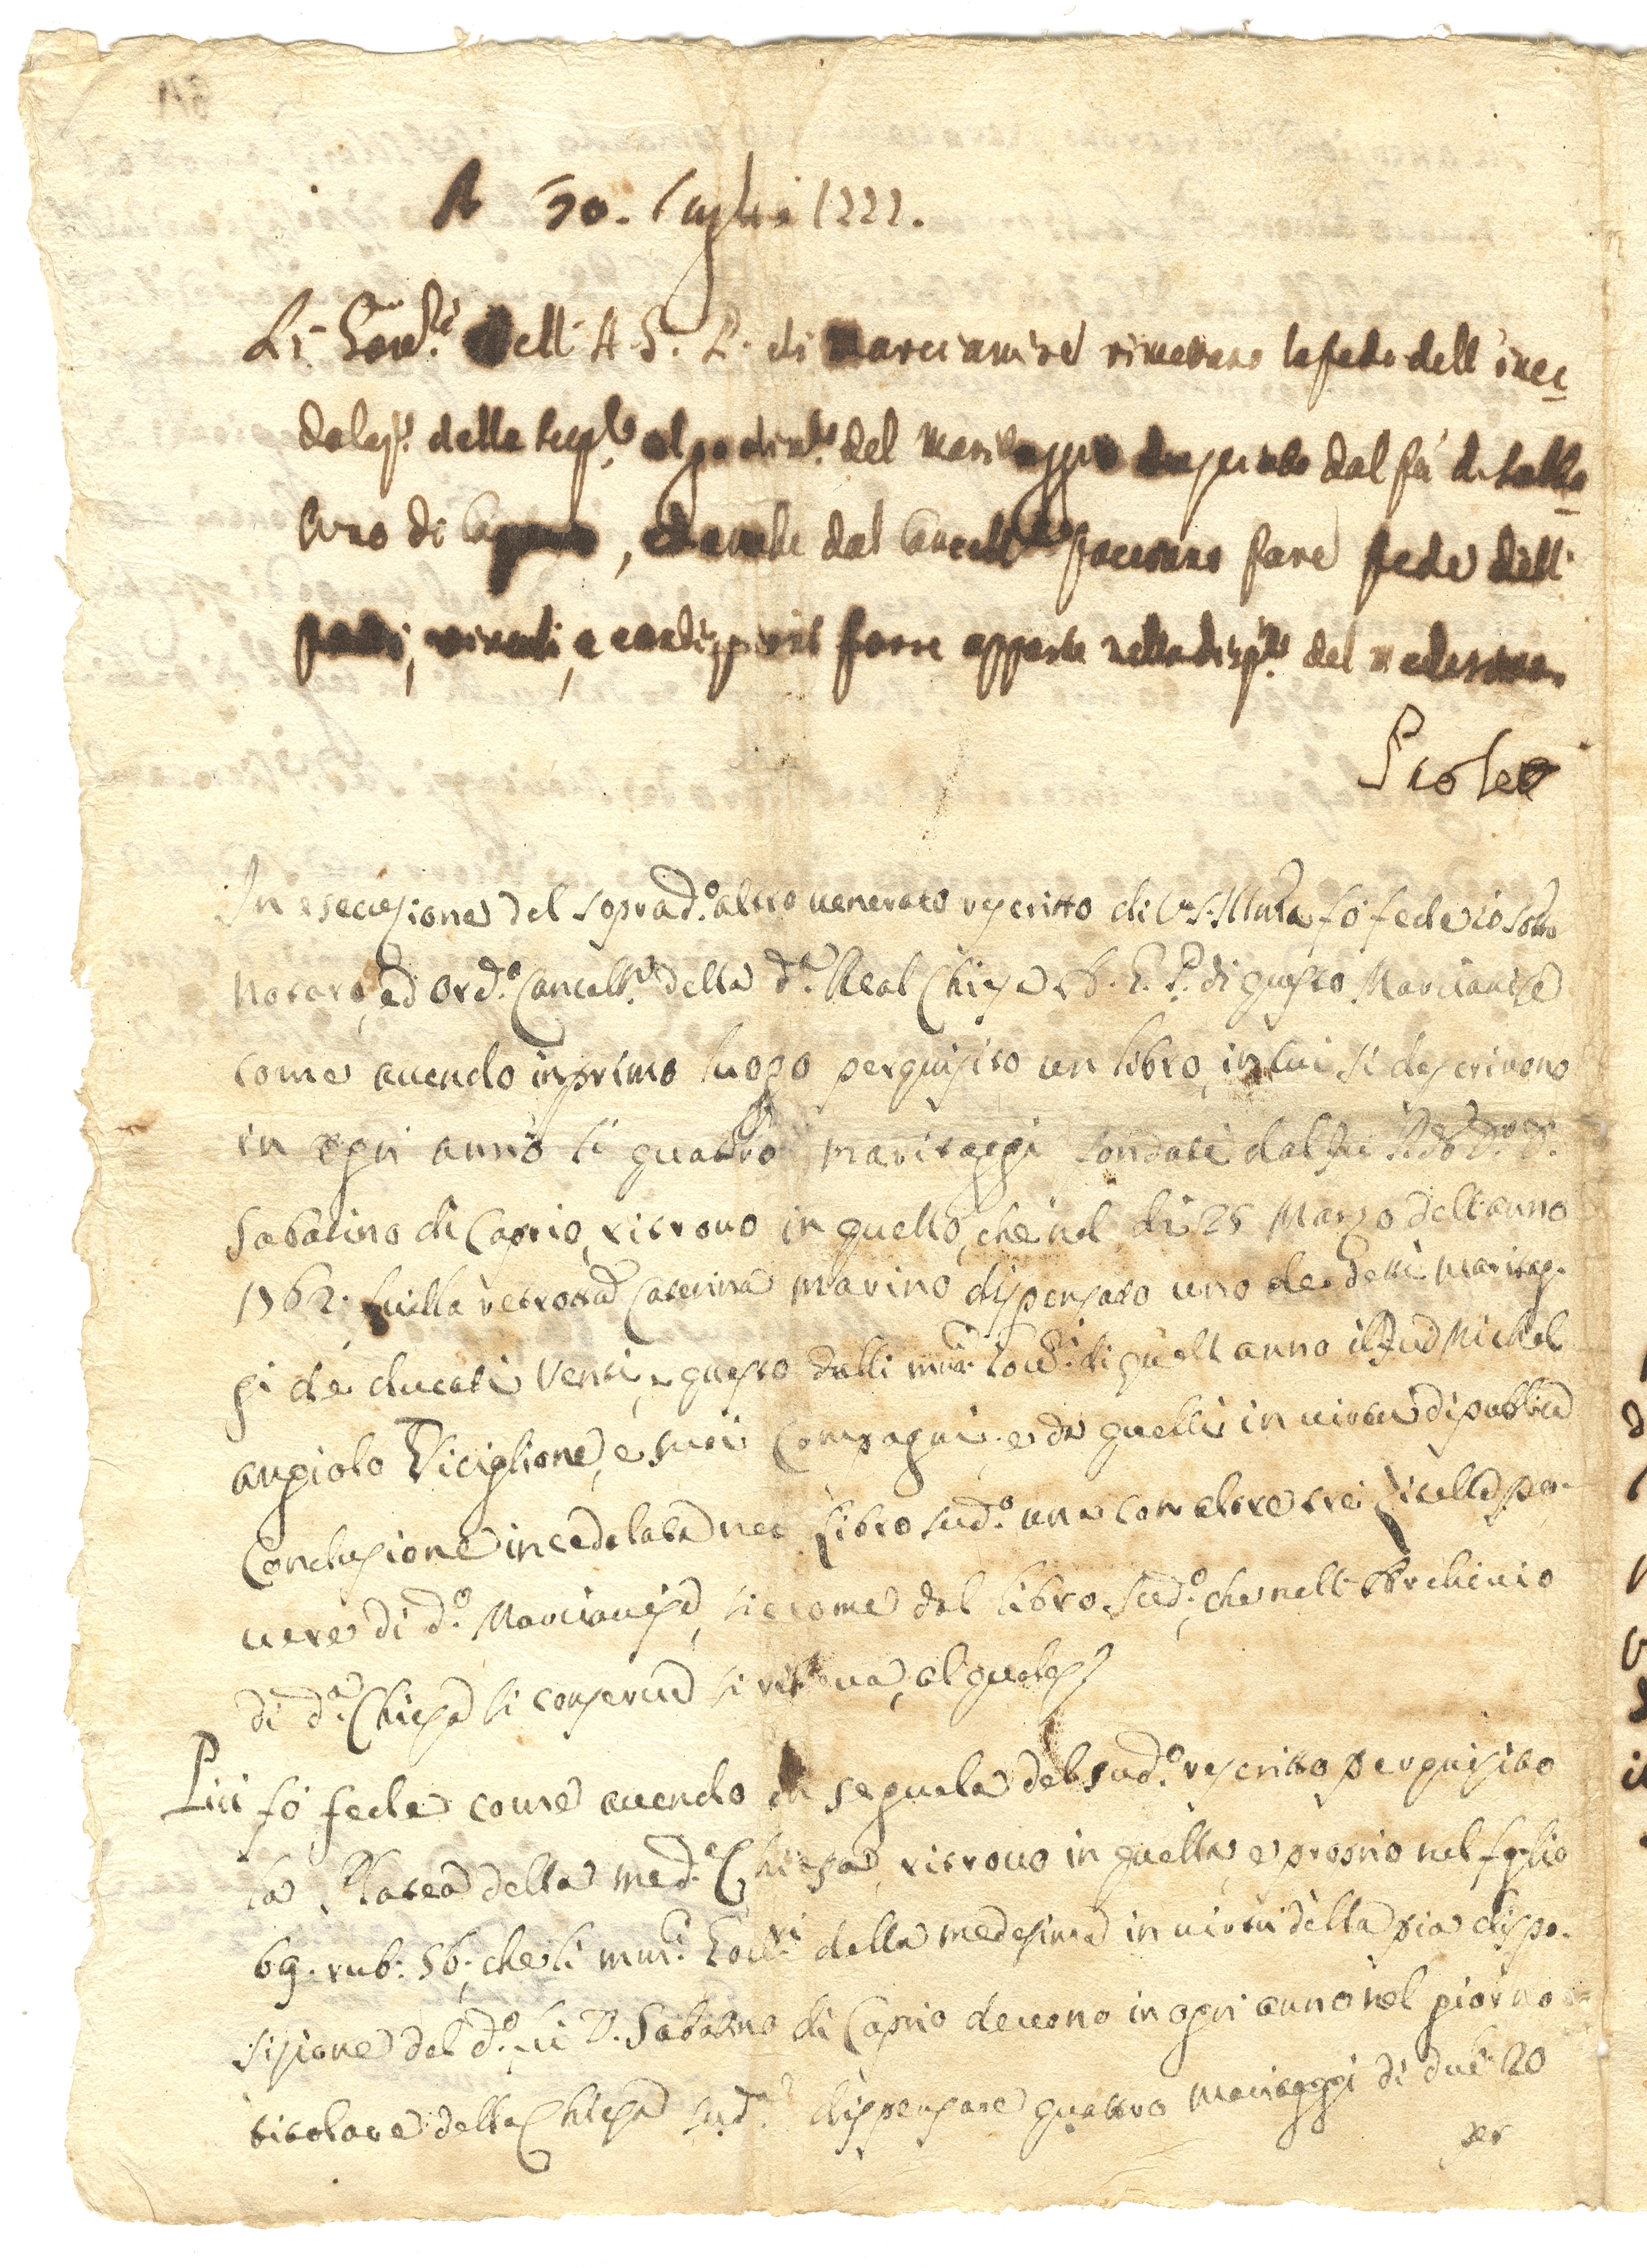 A 30. Luglio 1777.
Li Gov.ri dell' A. G. P. di Marcianise rimettano la fede dell' ince
dolaz.e della supl.e al godim.to del maritaggio dispensato dal fù D. Sabba
tino di Caprio, ed anche dal Cancell.re facciano fare fede delli
patti, vincoli, e condizioni forse apposte nella disp.ne del medesimo.
In esecuzione del soprad.o altro venerato rescritto di V. S. Illma fò fede io sotto
Notaro, ed ord.o Cancell.re della d.a Real Chiesa A. G. P. di questo Marcianise
come avendo in primo luogo perquisito un libro, in cui si descrivono
in ogni anno li quattro maritaggi fondati dal fu
Sabatino di Caprio, ritrovo in quello, che nel dì 25 Marzo dell'anno
1762. fu alla retros.a Caterina Marino dispensato uno de detti maritag-
gi di ducati venti, e questo dalli mag.ci Gov.ri di quell'anno il fu D. Michel
angiolo Viciglione, e suoi Compagni, e da quelli in virtù di pubblica
Conclusione incedolata nel libro sud.o una con altre trè Zitelle po-
vere di d.o Marcianise, siccome dal libro sud.o, che nell'Archivio
di d.a Chiesa si conserva si rileva, al quale &
Più fò fede come avendo in seguela del sud.o rescritto perquisito
la Platea della med.a Chiesa, ritrovo in quella, e proprio nel foglio
69. rub. 56, che li mag.ci Gov.ri della medesima in virtù della pia dispo-
sizione del d.o fu D. Sabatino di Caprio devono in ogni anno nel giorno
titolare della Chiesa sud.a dispensare quattro maritaggi di duc. 20
per